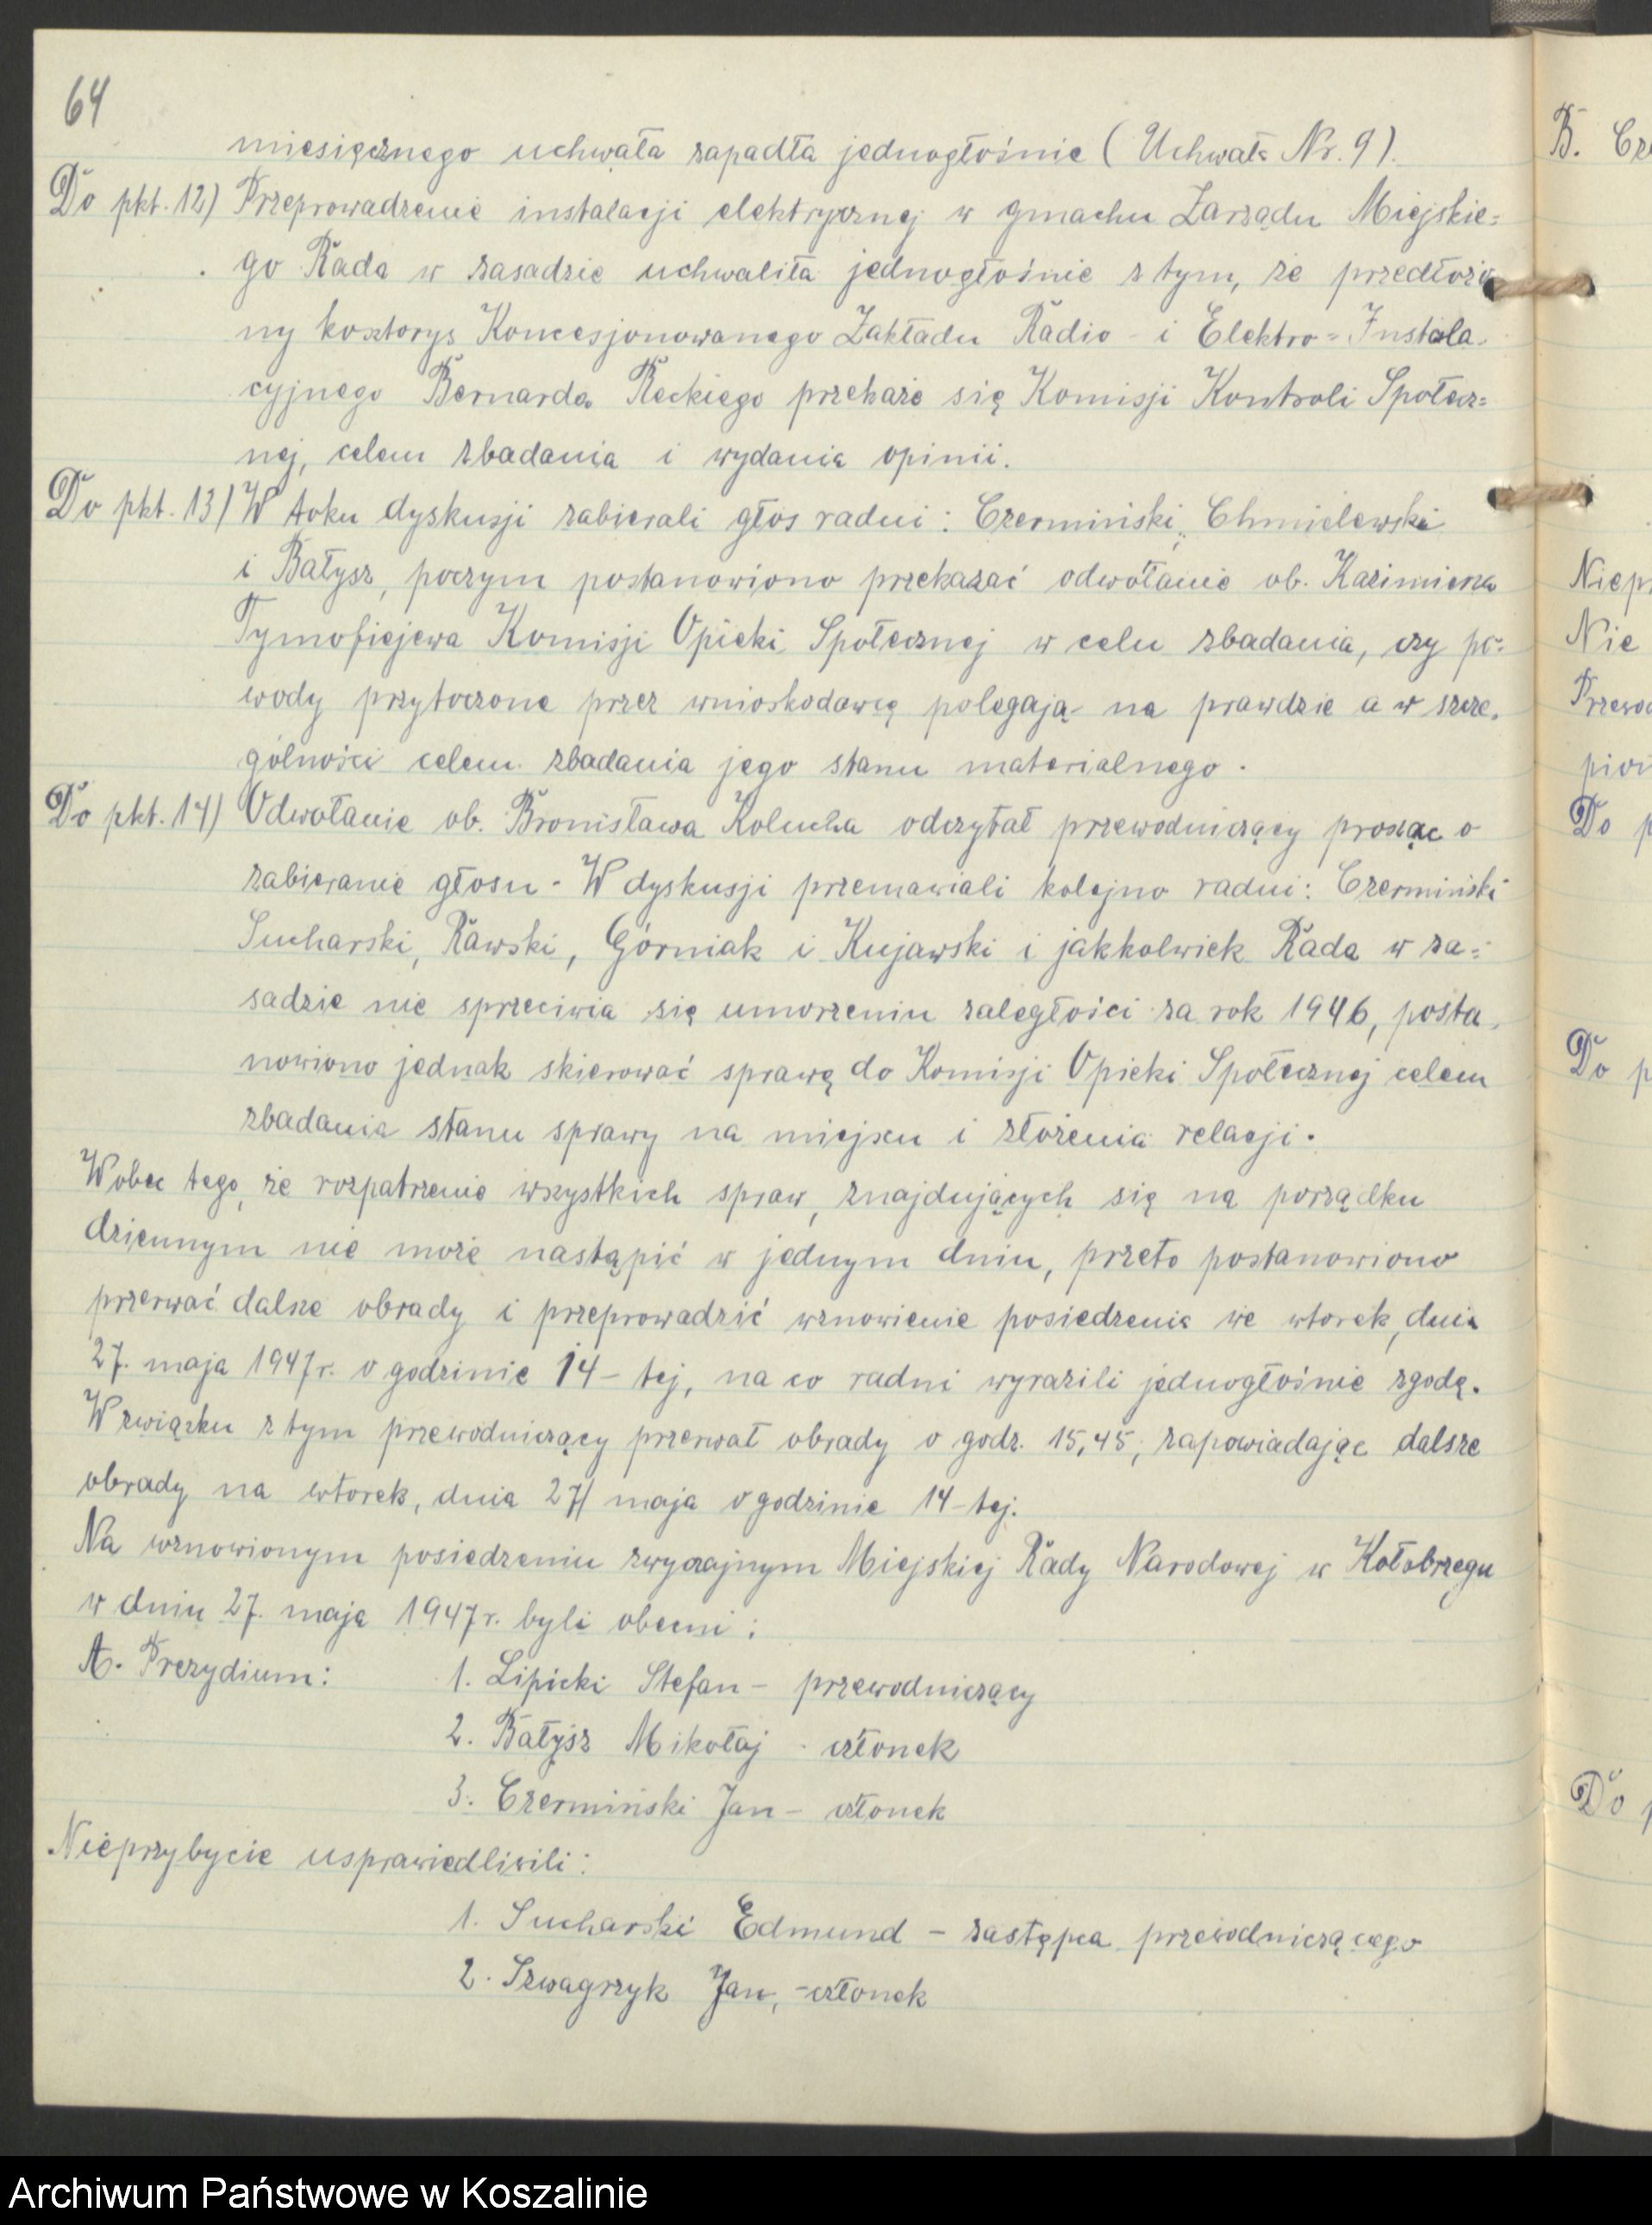 64
miesięcznego uchwała zapadła jednogłośnie (Uchwała Nr. 9).
Do pkt. 12) Przeprowadzenie instalacji elektrycznej w gmachu Zarządu Miejskie=
go Rada w zasadzie uchwaliła jednogłośnie z tym, że przedłożo
ny kosztorys Koncesjonowanego Zakładu Radio - i Elektro = Instala-
cyjnego Bernarda Reckiego przekaże się Komisji Kontroli Społecz=
nej, celem zbadania i wydania opinii.
Do pkt. 13) W toku dyskusji zabierali głos radni: Czermiński, Chmielewski
i Bałysz, poczym postanowiono przekazać odwołanie ob. Kazimierza
Tymofiejewa Komisji Opieki Społecznej w celu zbadania, czy po=
wody przytoczone przez wnioskodawcę polegają na prawdzie a w szcze-
gólności celem zbadania jego stanu materialnego.
Do pkt. 14) Odwołanie ob. Bronisława Kolucha odczytał przewodniczący prosząc o
zabieranie głosu - W dyskusji przemawiali kolejno radni: Czermiński
Sucharski, Rawski, Górniak i Kujawski i jakkolwiek Rada w za=
sadzie nie sprzeciwia się umorzeniu zaległości za rok 1946, posta-
nowiono jednak skierować sprawę do Komisji Opieki Społecznej celem
zbadania stanu sprawy na miejscu i złożenia relacji.
Wobec tego, że rozpatrzenie wszystkich spraw, znajdujących się na porządku
dziennym nie może nastąpić w jednym dniu, przeto postanowiono
przerwać dalsze obrady i przeprowadzić wznowienie posiedzenia we wtorek, dnia
27. maja 1947 r. o godzinie 14 - tej, na co radni wyrazili jednogłośnie zgodę.
W związku z tym przewodniczący przerwał obrady o godz. 15,45, zapowiadając dalsze
obrady na wtorek, dnia 27 maja o godzinie 14 - tej.
Na wznowionym posiedzeniu zwyczajnym Miejskiej Rady Narodowej w Kołobrzegu
w dniu 27. maja 1947 r. byli obecni:
A. Prezydium: 1. Lipicki Stefan - przewodniczący
2. Bałysz Mikołaj - członek
3. Czermiński Jan - członek
Nieprzybycie usprawiedliwili:
1. Sucharski Edmund - zastępca przewodniczącego
2. Szwagrzyk Jan, - członek
B. Cze
Niepr
Nie
Przewod
pion
Do p
Do p
Do p
Archiwum Państwowe w Koszalinie